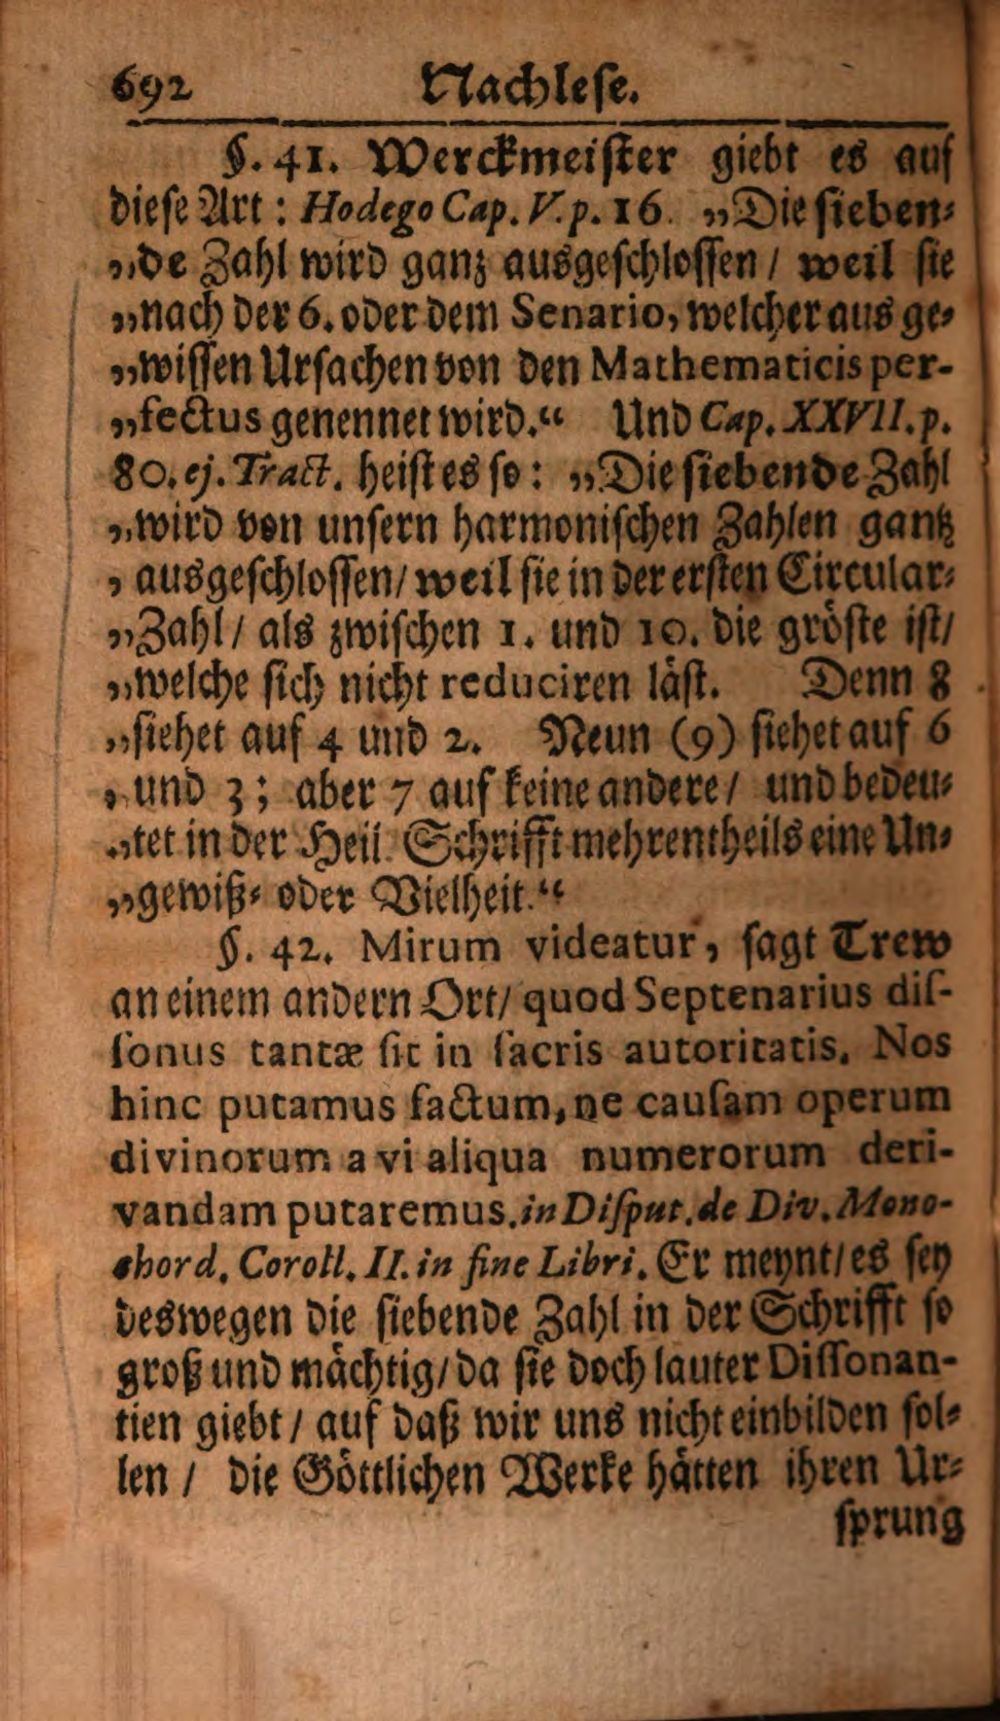 692 Nachlese.
§. 41. Werckmeister giebt es auf
diese Art: Hodego Cap. V. p. 16. „Die sieben⸗
„de Zahl wird ganz ausgeschlossen / weil sie
„nach der 6. oder dem Senario, welcher aus ge⸗
„wissen Ursachen von den Mathematicis per-
„fectus genennet wird.“ Und Cap. XXVII. p.
80. ej. Tract. heist es so: „Die siebende Zahl
„wird von unsern harmonischen Zahlen gantz
„ausgeschlossen/ weil sie in der ersten Circular⸗
„Zahl / als zwischen 1. und 10. die gröste ist/
„welche sich nicht reduciren läst. Denn 8
„siehet auf 4 und 2. Neun (9) siehet auf 6
„und 3; aber 7 auf keine andere / und bedeu⸗
„tet in der Heil. Schrifft mehrentheils eine Un⸗
„gewiß⸗ oder Vielheit.“
§. 42. Mirum videatur, sagt Trew
an einem andern Ort/ quod Septenarius diſ-
ſonus tantæ ſit in ſacris autoritatis. Nos
hinc putamus factum, ne cauſam operum
divinorum a vi aliqua numerorum deri-
vandam putaremus. in Diſput. de Div. Mono-
chord. Coroll. II. in fine Libri. Er meynt/ es sey
deswegen die siebende Zahl in der Schrifft so
groß und mächtig/ da sie doch lauter Dissonan-
tien giebt / auf daß wir uns nicht einbilden sol⸗
len / die Göttlichen Werke hätten ihren Ur⸗
sprung